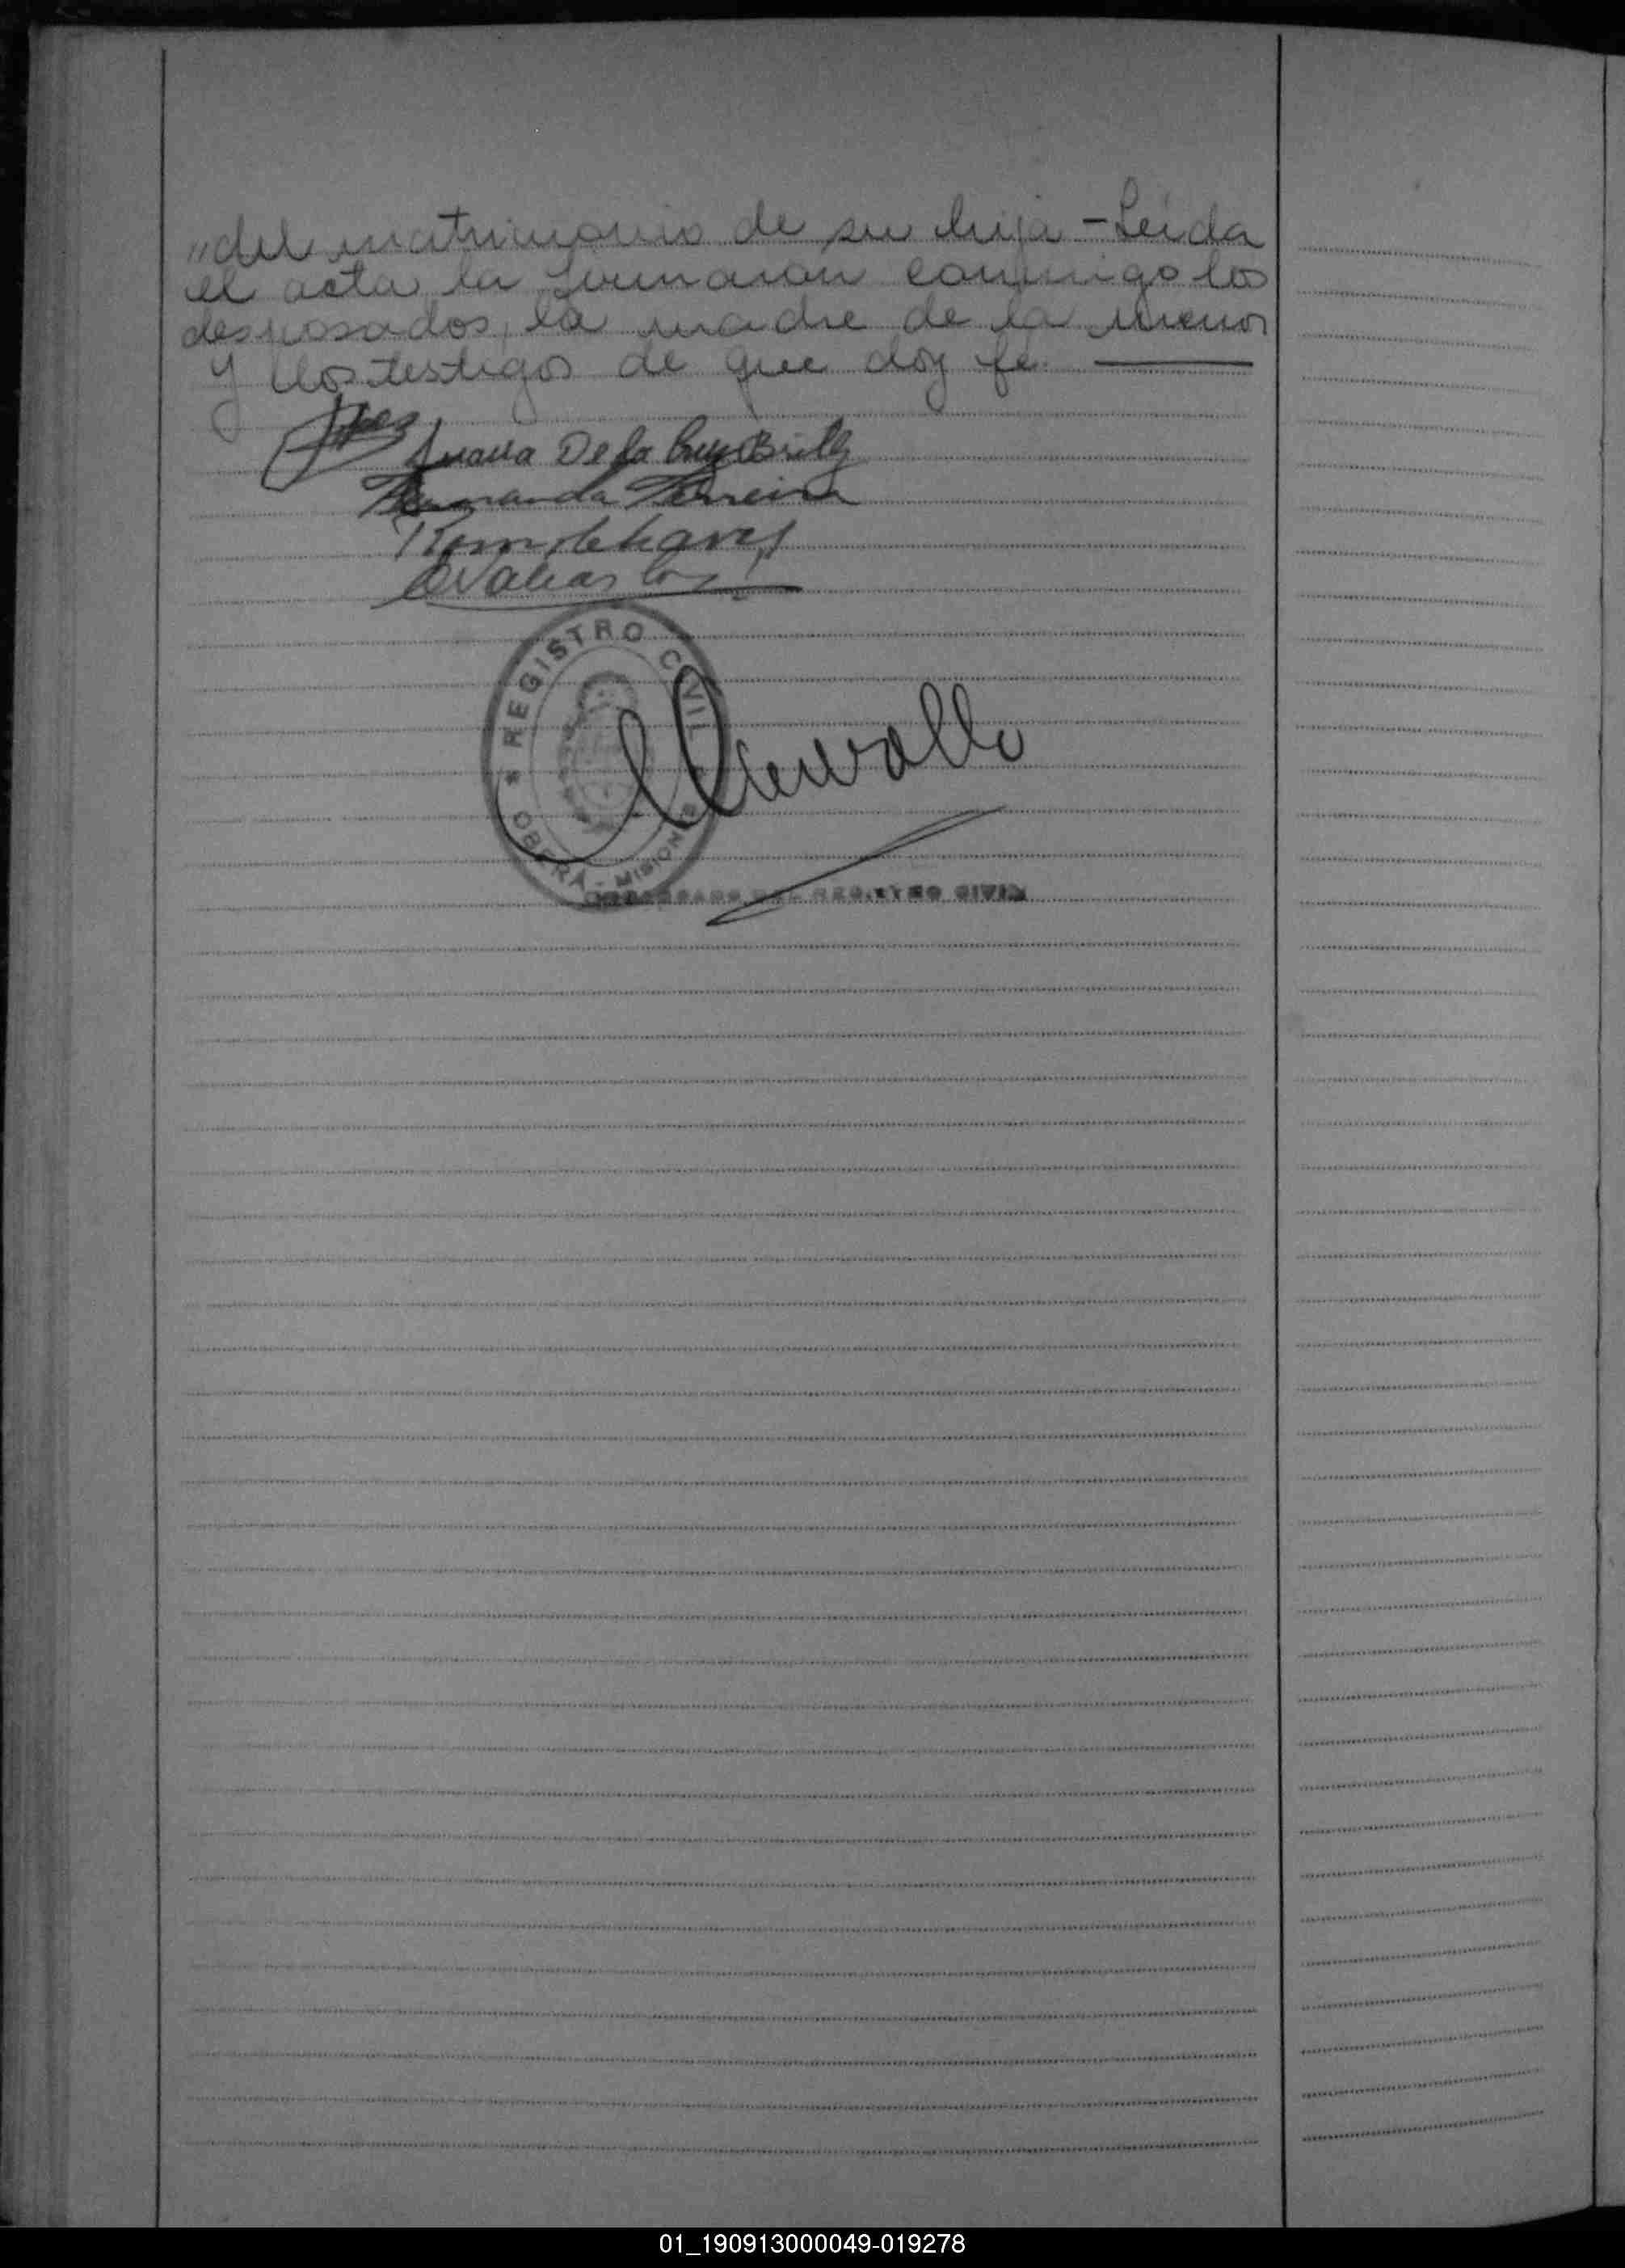 "del matrimonio de su hija - Leida
el acta la firmaron conmigo los
desposados, la madre de la menor
y los testigos de que doy fé.
Juana De la Cruz Britz
Fernanda Ferreira
Chavez
REGISTRO CIVIL
OBERA - MISIONES
DEL REGISTRO CIVIL
01_190913000049-019278